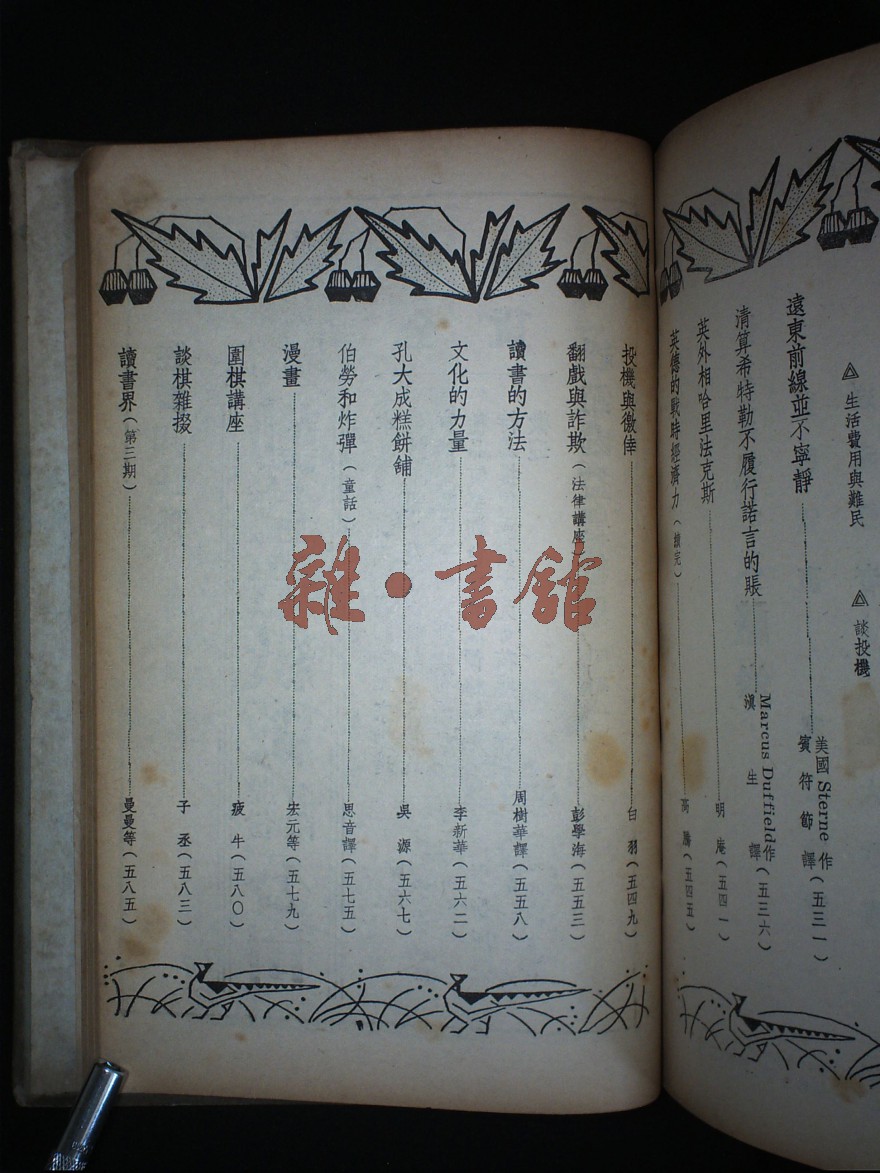 △ 生活費用與難民 △ 談投機
遠東前線並不寧靜 美國 Sterne 作 賓符節譯（五三一）
清算希特勒不履行諾言的賬 Marcus Duffield作 滇生譯（五三六）
英外相哈里法克斯 明庵（五四一）
英德的戰時經濟力（續完） 高鵬（五四五）
投機與徼倖 白羽（五四九）
翻戲與詐欺（法律講座 彭學海（五五三）
讀書的方法 周樹華譯（五五八）
文化的力量 李新華（五六二）
孔大成糕餅舖 吳源（五六七）
伯勞和炸彈（童話） 思音譯（五七五）
漫畫 宏元等（五七九）
圍棋講座 疲牛（五八〇）
談棋雜掇 子丞（五八三）
讀書界（第三期） 曼曼等（五八五）
雜·書館